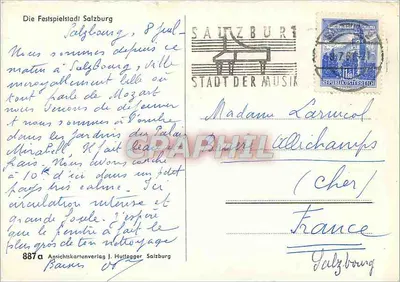 Die Festspielstadt Salzburg
Salzbourg, 8 Juil.
Nous sommes depuis ce
matin à Salzbourg, ville
incroyablement belle où
tout parle de Mozart
nous venons de déjeuner
et nous sommes à l'ombre
dans les jardins du Palais
Mirabell. Il fait
frais. Nous avons
à 10 d'ici dans un petit
pays très calme. Ici
circulation intense et
grande foule. J'espère
que le plus
gros de ton nettoyage
Baisers
887a Ansichtskartenverlag J. Huttegger Salzburg
SALZBURG
STADT DER MUSIK
REPUBLIK ÖSTERREICH
Madame
Bruère Allichamps
(Cher)
France
Salzbourg
CPAPHIL